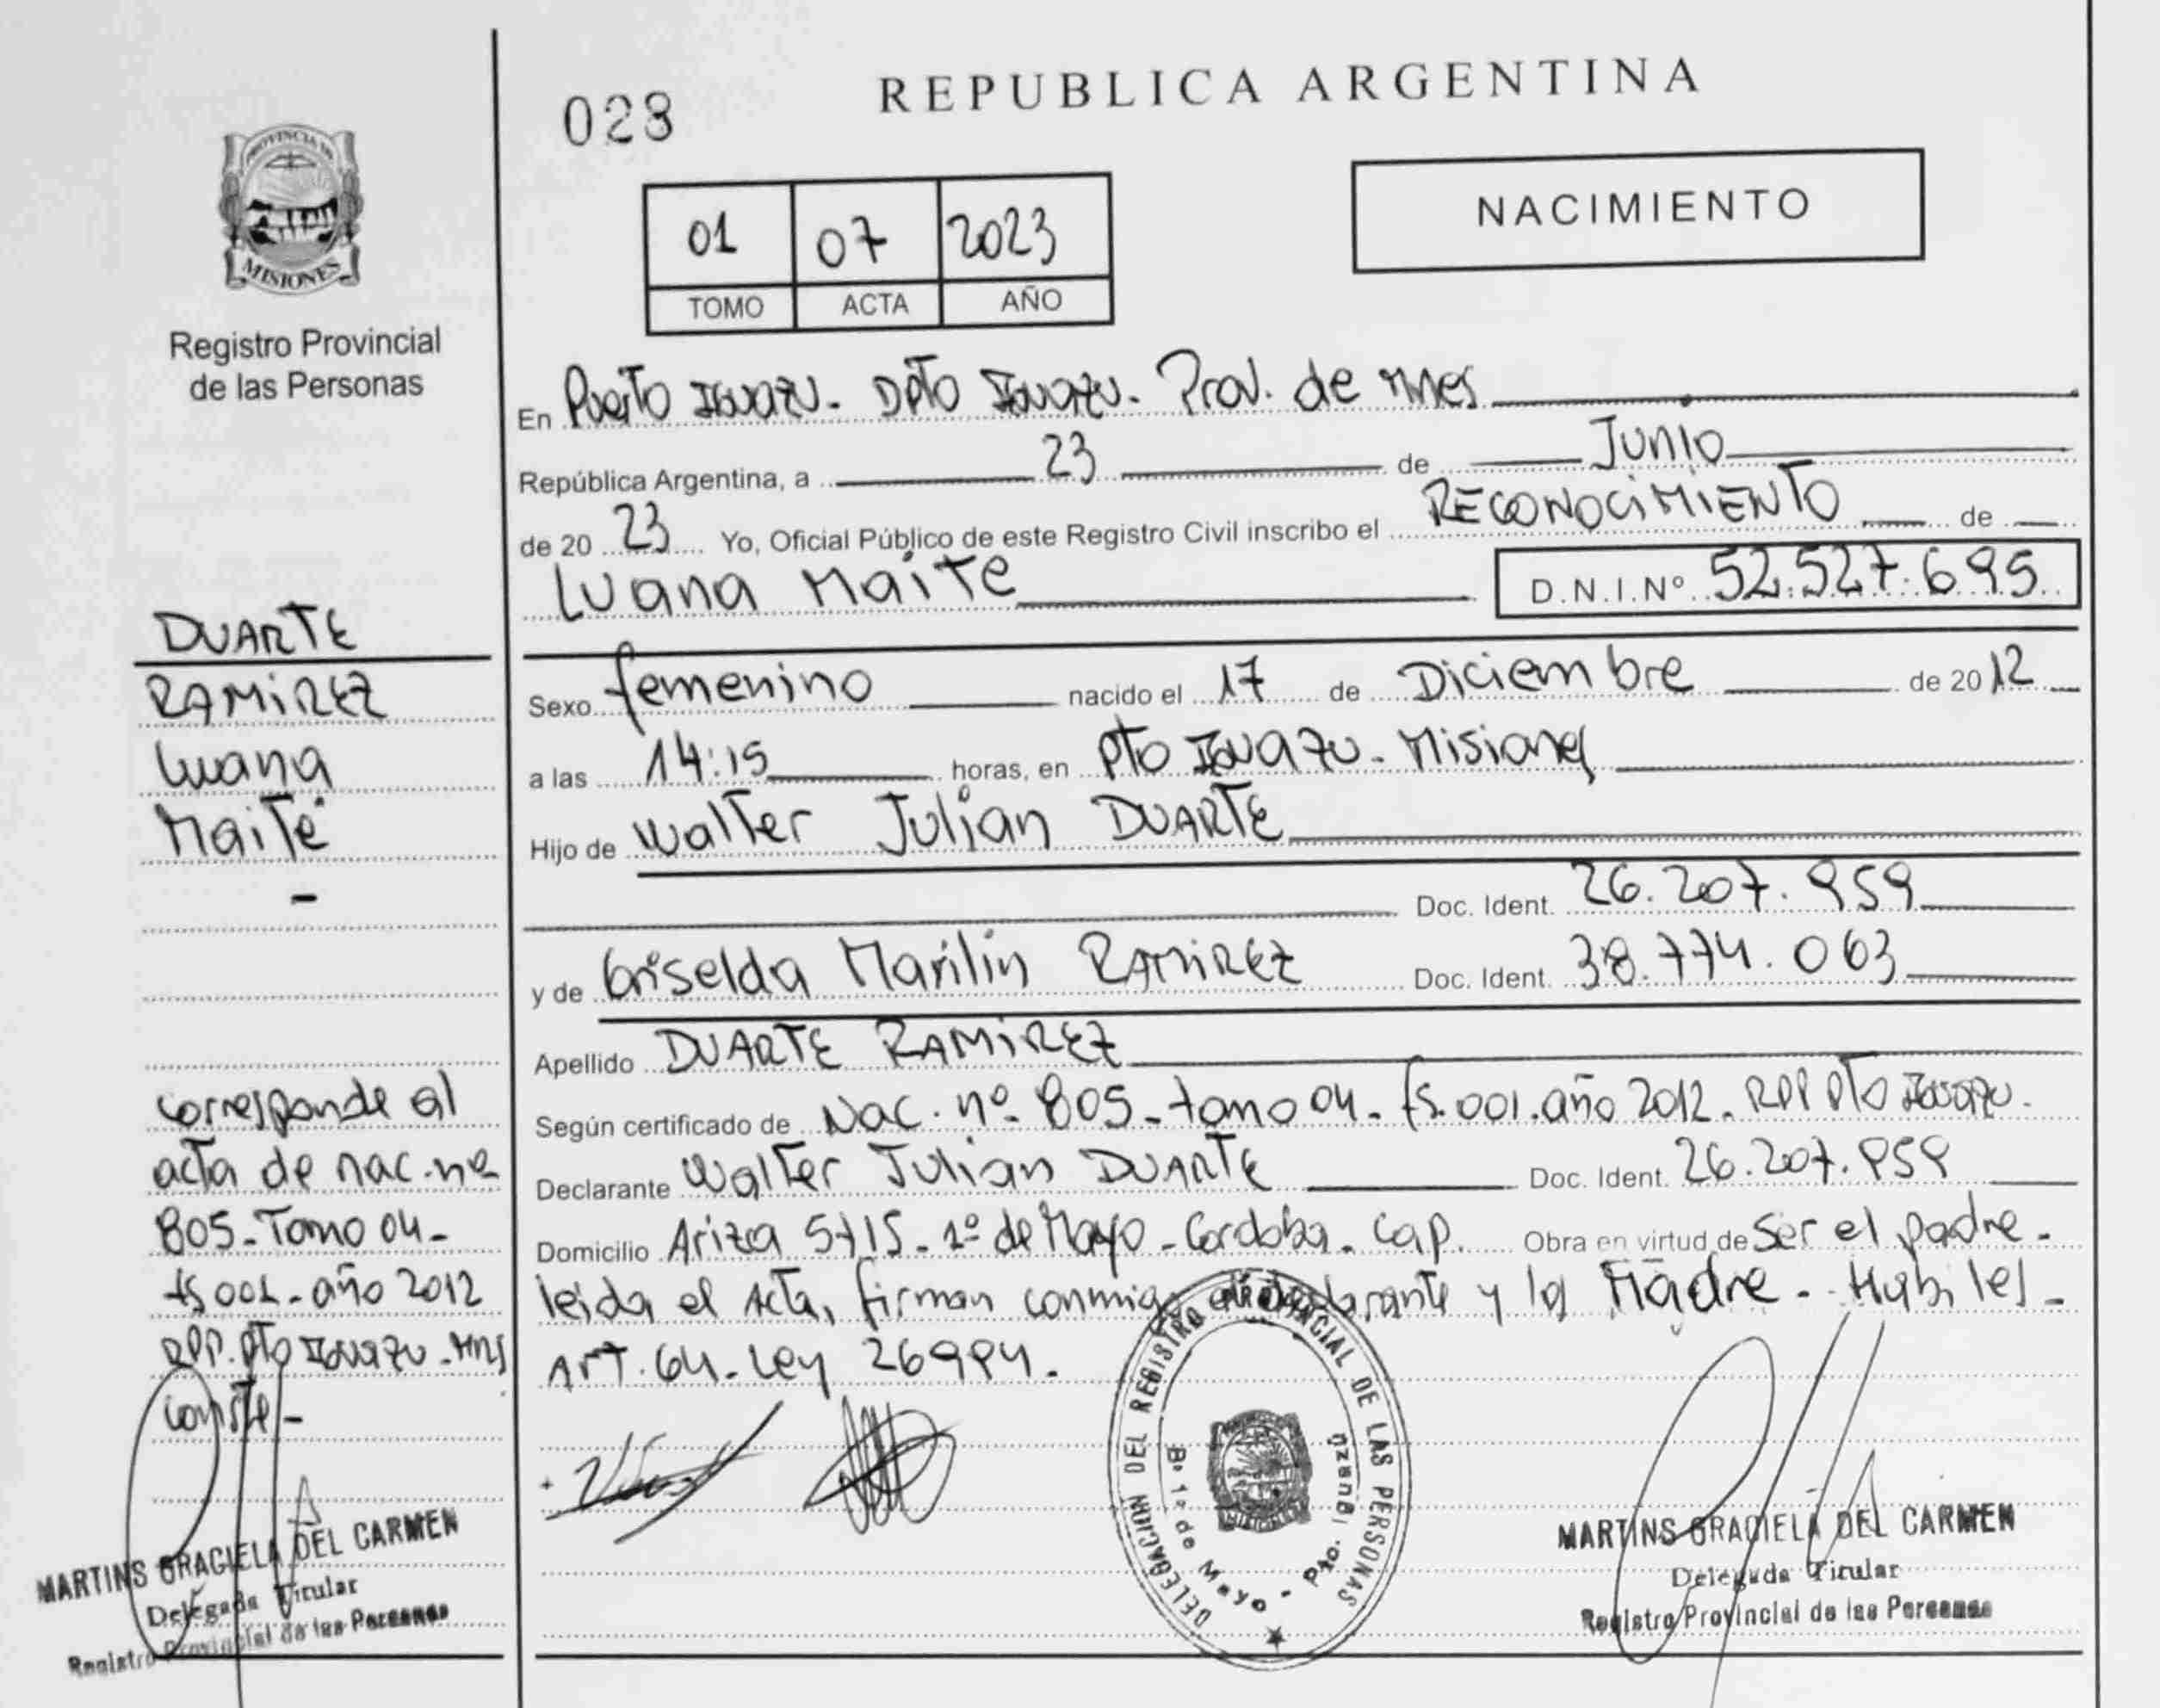 REPUBLICA ARGENTINA
028
PROVINCIA DE
MISIONES
Registro Provincial
de las Personas
01 07 2023
TOMO ACTA AÑO
NACIMIENTO
En Puerto Iguazu. Dpto Iguazu. Prov. de Mnes
República Argentina, a 23 de Junio
de 2023 Yo, Oficial Público de este Registro Civil inscribo el RECONOCIMIENTO de
Luana Maite D.N.I.Nº 52.527.695
Sexo femenino nacido el 17 de Diciembre de 2012
a las 14:15 horas, en Pto Iguazu - Misiones
Hijo de Walter Julian DUARTE
Doc. Ident. 26.207.959
y de Griselda Marilin RAMIREZ Doc. Ident. 38.774.063
Apellido DUARTE RAMIREZ
Según certificado de Nac. nº 805 - tomo 04 - fs. 001. año 2012. RPP Pto Iguazu.
Declarante Walter Julian DUARTE Doc. Ident. 26.207.959
Domicilio Ariza 5715 - 1º de Mayo - Cordoba. Cap. Obra en virtud de Ser el padre -
leida el Acta, firman conmigo el declarante y la Madre -
ART. 64 - Ley 26994.
DUARTE
RAMIREZ
Luana
Maite
-
corresponde al
acta de nac. nº
805 - Tomo 04 -
fs 001 - año 2012
RPP. Pto Iguazu - Mns
Conste -
MARTINS GRACIELA DEL CARMEN
Delegada Titular
Registro Provincial de las Personas
DELEGACION DEL REGISTRO PROVINCIAL DE LAS PERSONAS
Bº 1º de Mayo - Pto. Iguazú
MARTINS GRACIELA DEL CARMEN
Delegada Titular
Registro Provincial de las Personas